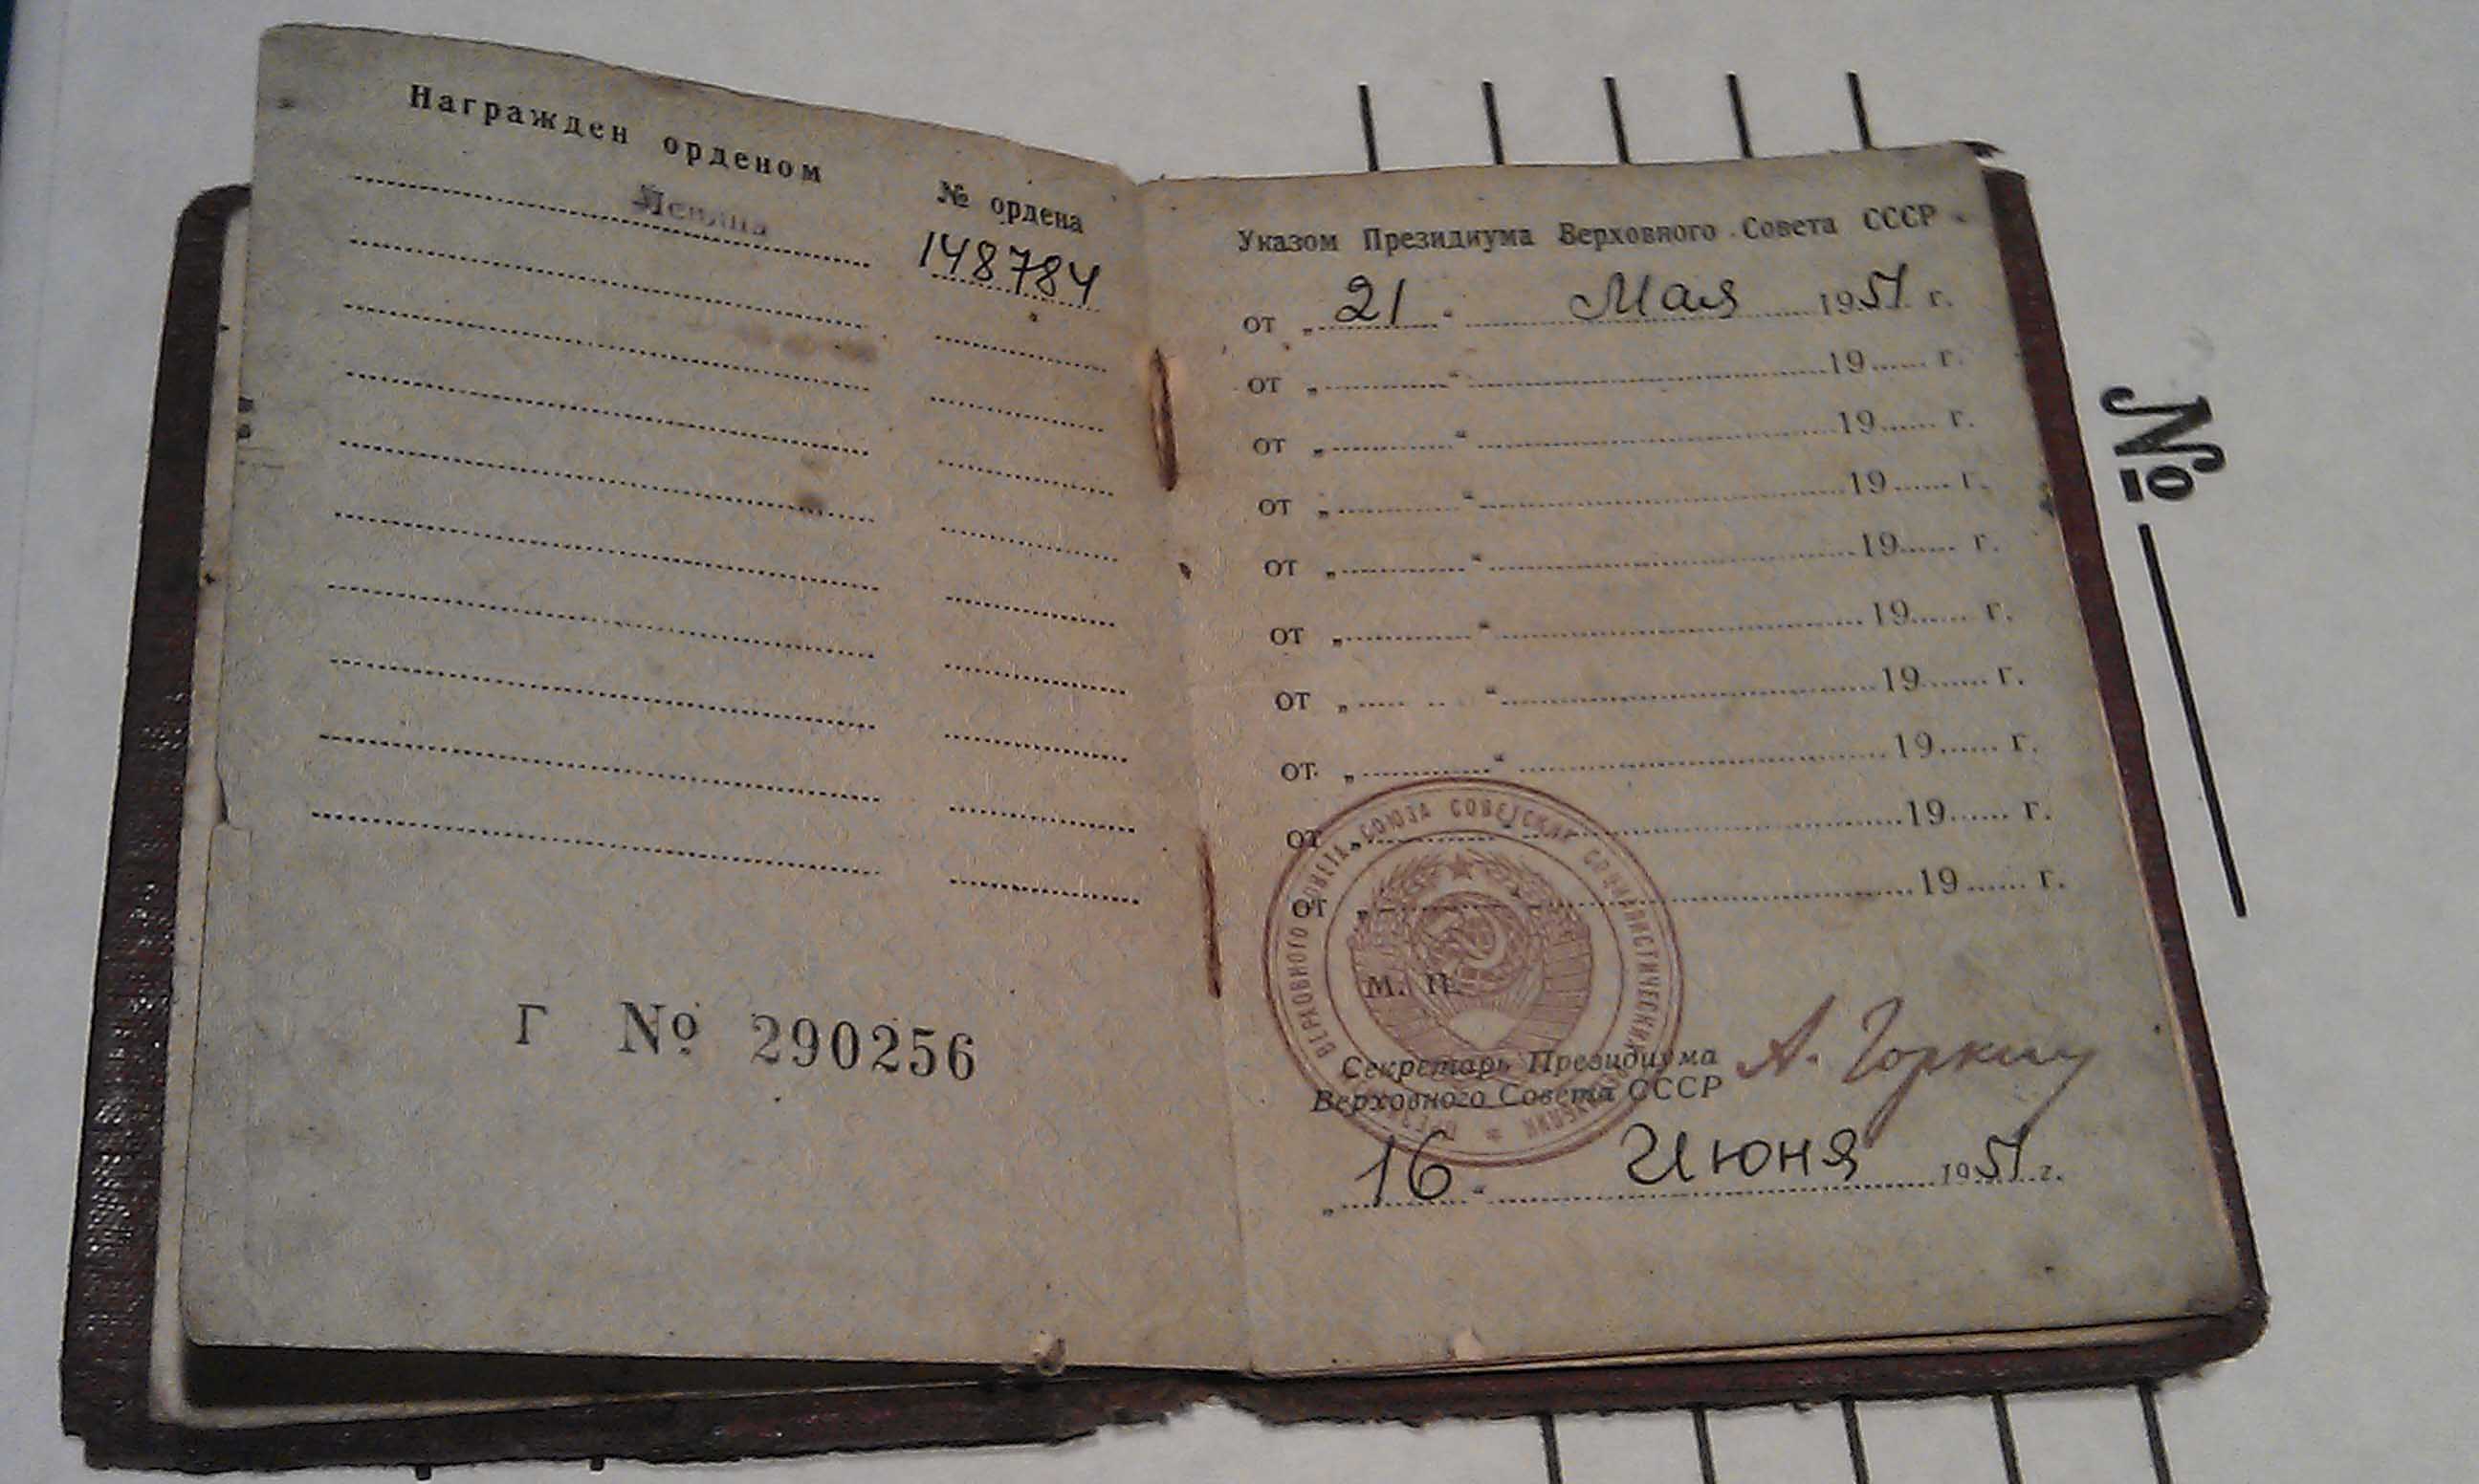 Награжден орденом
№ ордена
Ленина
148784
Г № 290256
Указом Президиума Верховного Совета СССР
от „21“ Мая 1951 г.
от „ “ 19 г.
от „ “ 19 г.
от „ “ 19 г.
от „ “ 19 г.
от „ “ 19 г.
от „ “ 19 г.
от „ “ 19 г.
от „ “ 19 г.
от „ “ 19 г.
ВЕРХОВНОГО СОВЕТА СОЮЗА СОВЕТСКИХ СОЦИАЛИСТИЧЕСКИХ
М. П.
Секретарь Президиума
Верховного Совета СССР
А. Горкин
„16“ Июня 1951 г.
№